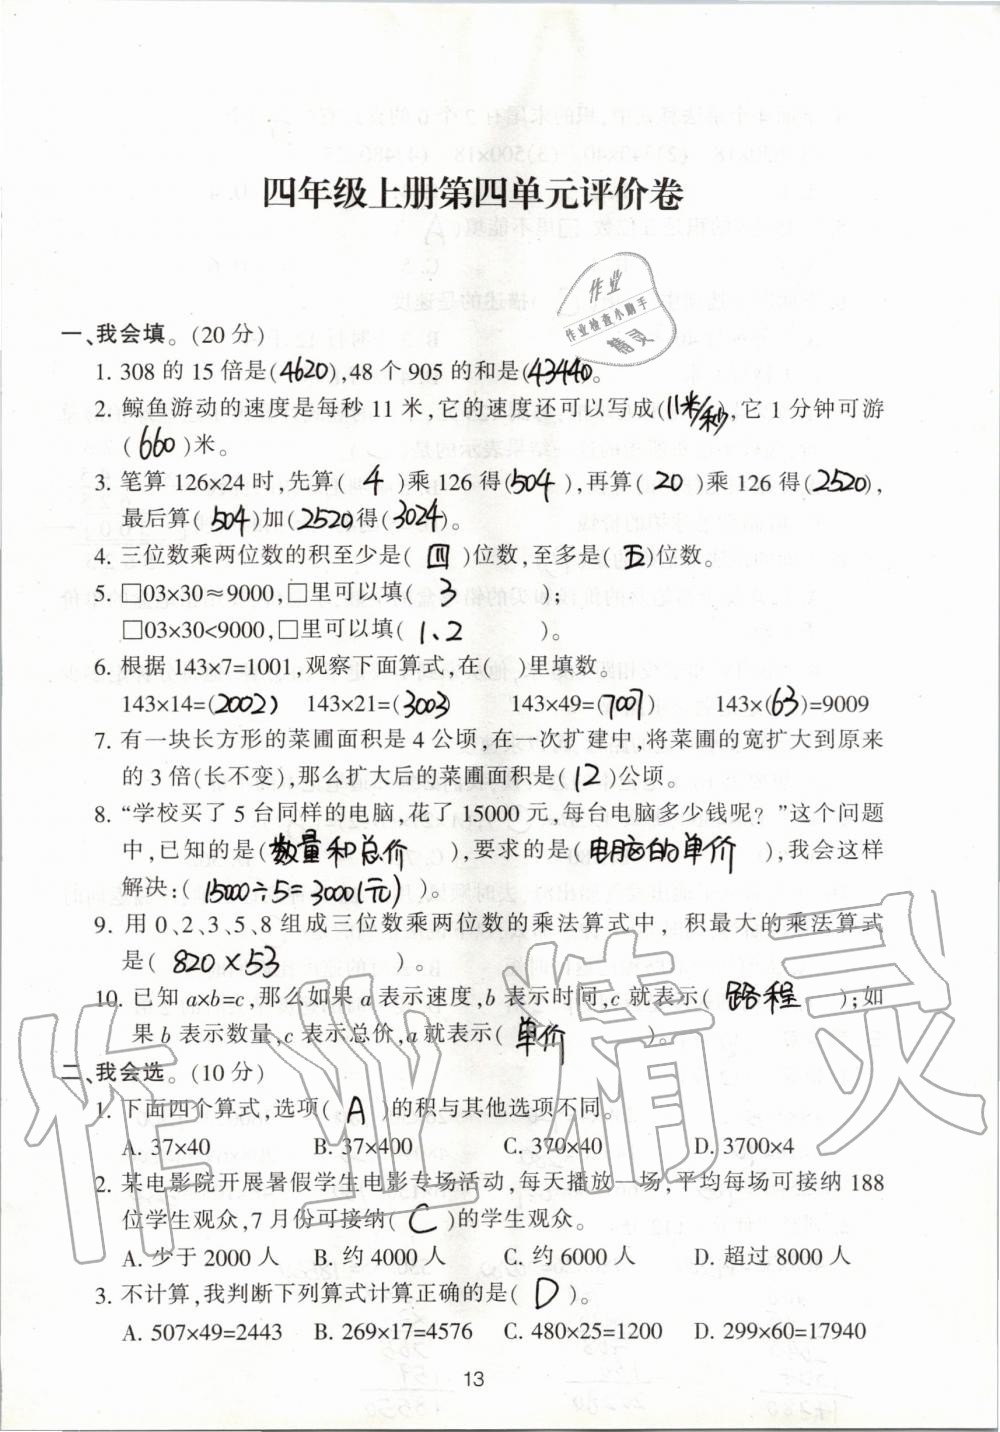 四年级上册第四单元评价卷
作业
作业检查小助手
精灵
一、我会填。(20 分)
1. 308 的 15 倍是(4620),48 个 905 的和是(43440)。
2. 鲸鱼游动的速度是每秒 11 米,它的速度还可以写成(11米/秒),它 1 分钟可游
(660)米。
3. 笔算 126×24 时,先算( 4 )乘 126 得(504),再算( 20 )乘 126 得(2520),
最后算(504)加(2520)得(3024)。
4. 三位数乘两位数的积至少是( 四 )位数,至多是(五)位数。
5. □03×30≈9000,□里可以填( 3 );
□03×30<9000,□里可以填( 1、2 )。
6. 根据 143×7=1001,观察下面算式,在( )里填数。
143×14=(2002) 143×21=(3003) 143×49=(7007) 143×(63)=9009
7. 有一块长方形的菜圃面积是 4 公顷,在一次扩建中,将菜圃的宽扩大到原来
的 3 倍(长不变),那么扩大后的菜圃面积是(12)公顷。
8. “学校买了 5 台同样的电脑,花了 15000 元,每台电脑多少钱呢？”这个问题
中,已知的是(数量和总价),要求的是(电脑的单价),我会这样
解决:(15000÷5=3000(元))。
9. 用 0、2、3、5、8 组成三位数乘两位数的乘法算式中，积最大的乘法算式
是( 820×53 )。
10. 已知 a×b=c,那么如果 a 表示速度,b 表示时间,c 就表示( 路程 );如
果 b 表示数量,c 表示总价,a 就表示( 单价 )。
二、我会选。(10 分)
1. 下面四个算式,选项( A )的积与其他选项不同。
A. 37×40 B. 37×400 C. 370×40 D. 3700×4
2. 某电影院开展暑假学生电影专场活动,每天播放一场,平均每场可接纳 188
位学生观众,7 月份可接纳( C )的学生观众。
A. 少于 2000 人 B. 约 4000 人 C. 约 6000 人 D. 超过 8000 人
3. 不计算,我判断下列算式计算正确的是( D )。
A. 507×49=2443 B. 269×17=4576 C. 480×25=1200 D. 299×60=17940
13
作业精灵